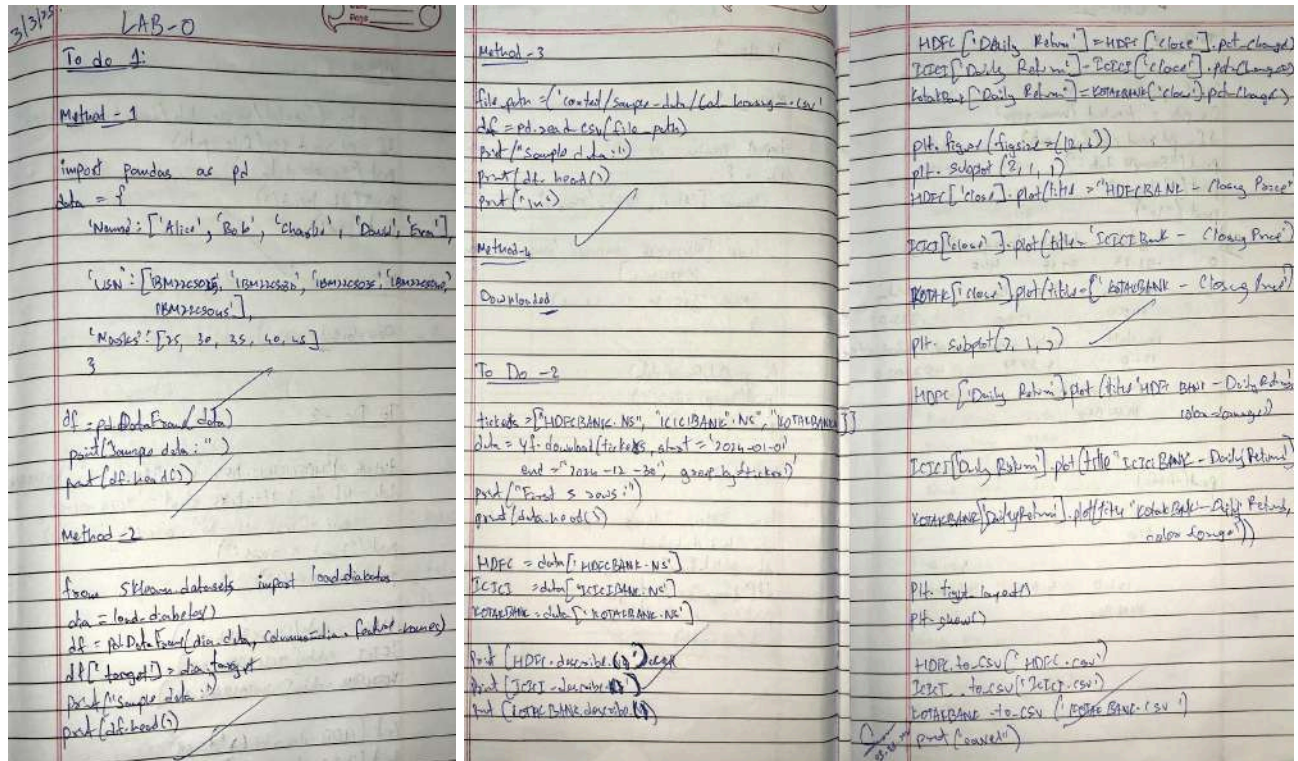 3/3/25
LAB-0
To do 1:
Method - 1
import pandas as pd
data = {
'Name': ['Alice', 'Bob', 'Charlie', 'David', 'Eva'],
'USN': [
],
'Marks': [25, 30, 35, 40, 45]
}
df = pd.DataFrame(data)
print("Sample data:")
print(df.head())
Method - 2
from sklearn.datasets import load_diabetes
dia = load_diabetes()
df = pd.DataFrame(dia.data, columns=dia.feature_names)
df['target'] = dia.target
print("Sample data:")
print(df.head())
Method - 3
file_path = ('content/sample-data/
df = pd.read_csv(file_path)
print("Sample data:")
print(df.head())
print("\n")
Method-4
Downloaded
To Do - 2
tickers = ["HDFCBANK.NS", "ICICIBANK".NS", "KOTAKBANK
data = yf.download(tickers, start = '2024-01-01'
end = "2024-12-30", group_by=
print("First 5 rows:")
print(data.head())
HDFC = data['HDFCBANK.NS']
ICICI = data['ICICIBANK.NS']
KOTAKBANK = data['KOTAKBANK.NS']
Print (HDFC.describe
Print (ICICI.describe
Print (KOTAKBANK.describe
HDFC['Daily Return'] = HDFC['close'].pct_change()
ICICI['Daily Return'] = ICICI['close'].pct_change()
KotakBank['Daily Return'] = KOTAKBANK['close'].pct_change()
plt.figure(figsize=(12,6))
plt.subplot(2,1,1)
HDFC['close'].plot(title = "HDFCBANK - Closing Price"
ICICI['close'].plot(title = 'ICICI Bank - Closing Price')
KOTAK['close'].plot(title = ['KOTAKBANK - Closing Price')
plt.subplot(2,1,2)
HDFC['Daily Return'].plot(title 'HDFC BANK - Daily Return
color=orange')
ICICI['Daily Return'].plot(title "ICICI BANK - Daily Return')
KOTAKBANK['Daily Return'].plot(title "Kotak Bank - Daily Return,
color orange'))
Plt.tight_layout()
Plt.show()
HDFC.to_csv('HDFC.csv')
ICICI.to_csv('ICICI.csv')
KOTAKBANK.to_csv('KOTAKBANK.csv')
print("saved")